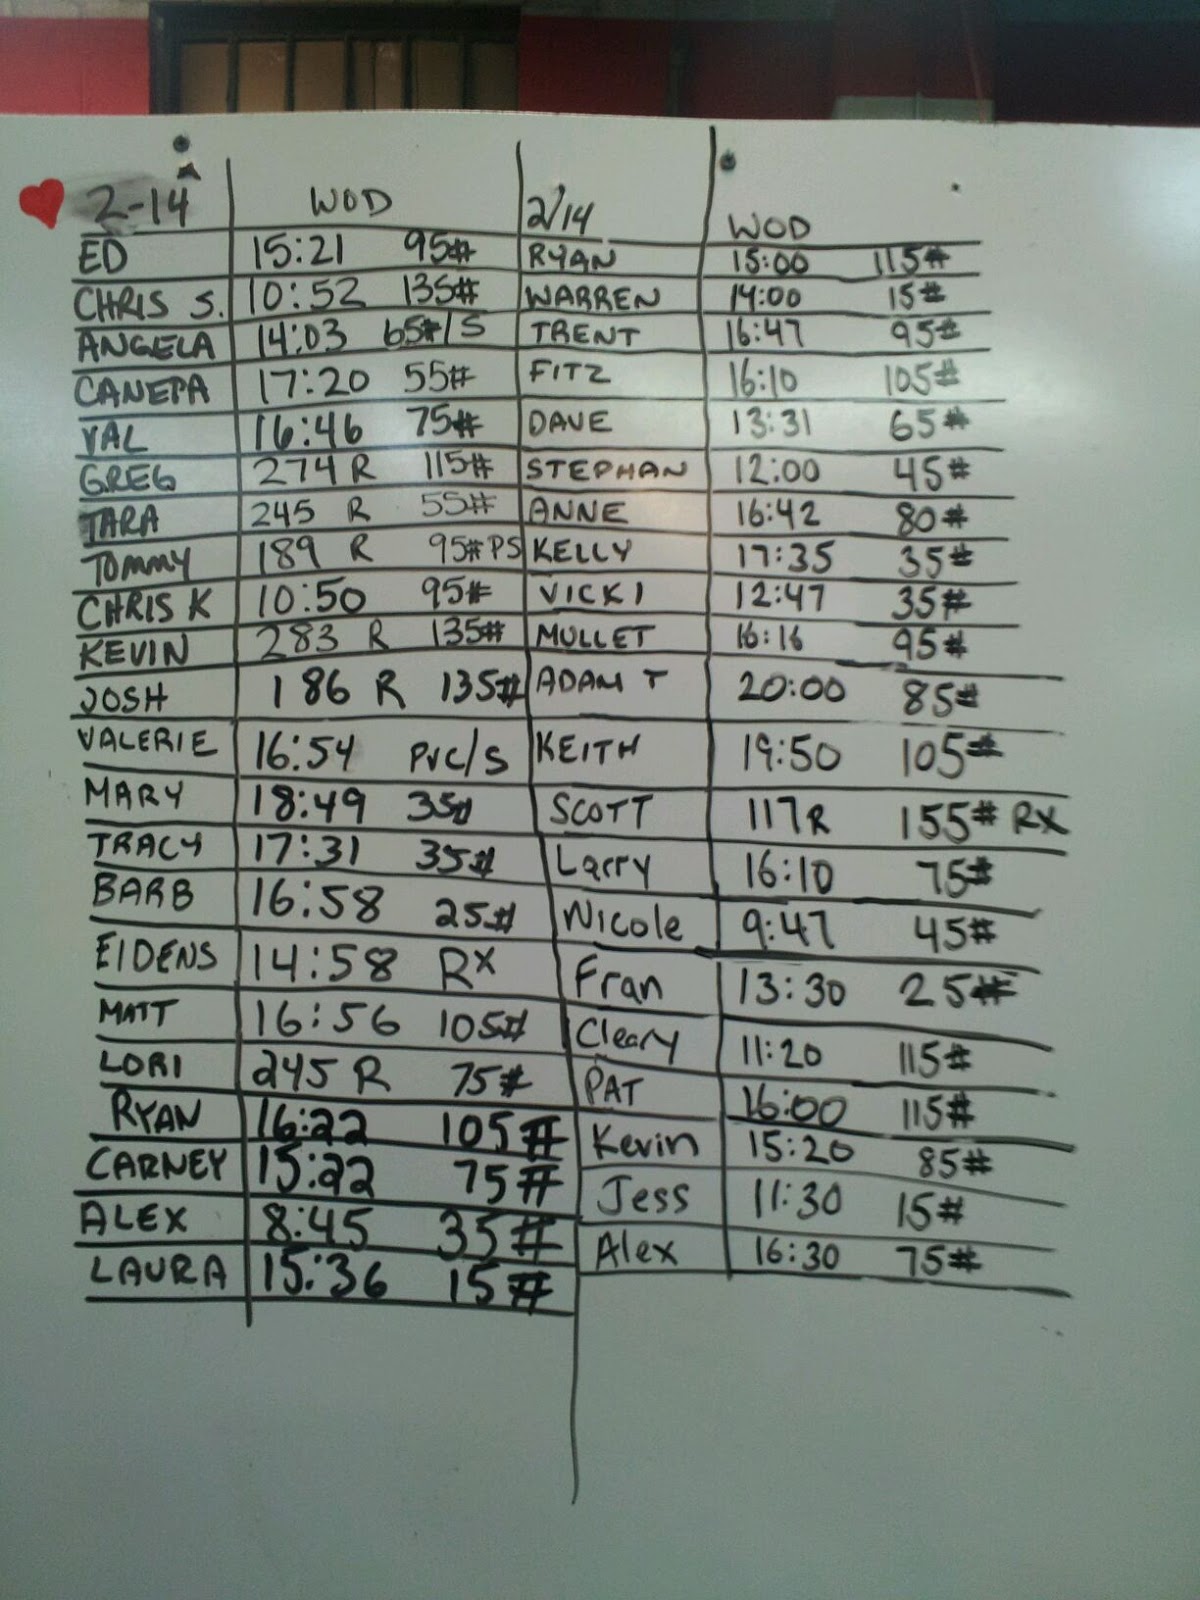 2-14 WOD 2/14 WOD
ED 15:21 95# RYAN 15:00 115#
CHRIS S. 10:52 135# WARREN 14:00 15#
ANGELA 14:03 65#/S TRENT 16:47 95#
CANEPA 17:20 55# FITZ 16:10 105#
VAL 16:46 75# DAVE 13:31 65#
GREG 274 R 115# STEPHAN 12:00 45#
TARA 245 R 55# ANNE 16:42 80#
TOMMY 189 R 95# PS KELLY 17:35 35#
CHRIS K 10:50 95# VICKI 12:47 35#
KEVIN 283 R 135# MULLET 16:16 95#
JOSH 186 R 135# ADAM T 20:00 85#
VALERIE 16:54 PVC/S KEITH 19:50 105#
MARY 18:49 35# SCOTT 117R 155# RX
TRACY 17:31 35# Larry 16:10 75#
BARB 16:58 25# Nicole 9:47 45#
EIDENS 14:58 RX Fran 13:30 25#
MATT 16:56 105# Cleary 11:20 115#
LORI 245 R 75# PAT 16:00 115#
RYAN 16:22 105# Kevin 15:20 85#
CARNEY 15:22 75# Jess 11:30 15#
ALEX 8:45 35# Alex 16:30 75#
LAURA 15:36 15#